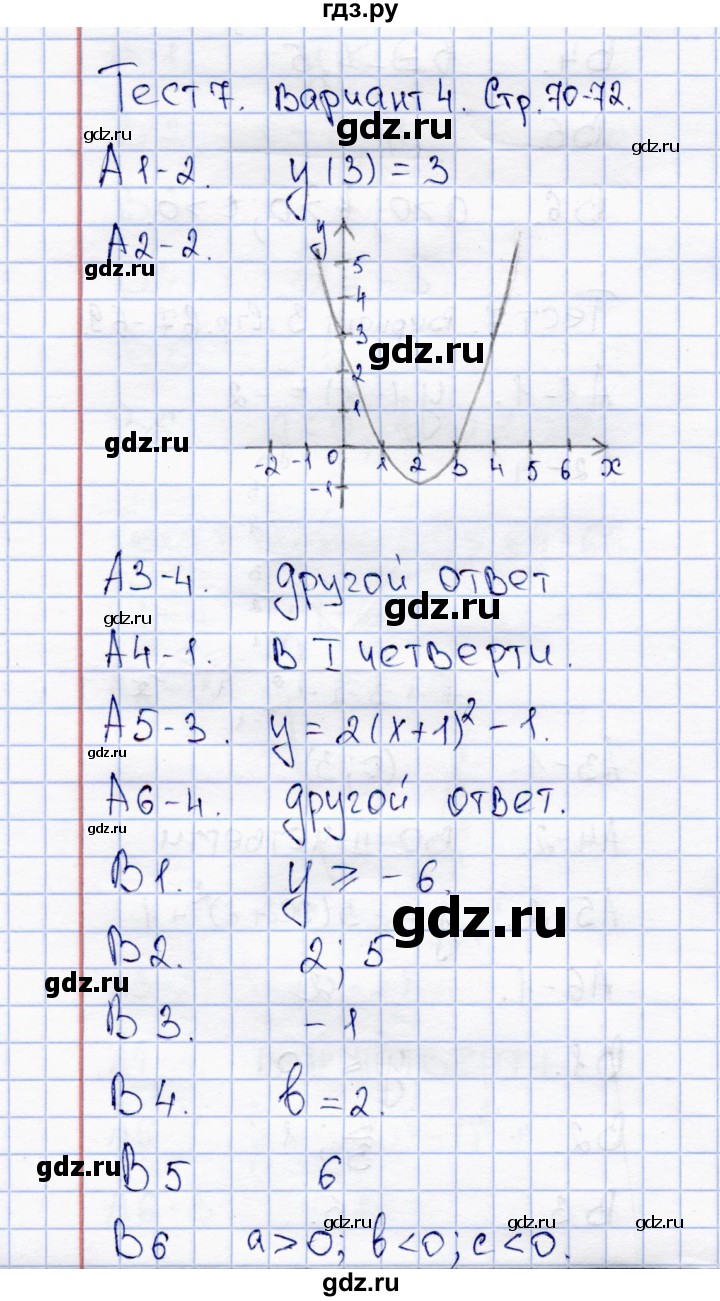 гдз.ру
Тест 7. Вариант 4. Стр. 70-72.
gdz.ru gdz.ru gdz.ru
А1-2. y(3) = 3
А2-2. y
gdz.ru
5
4
3
gdz.ru
2
1
gdz.ru
-2 -1 0 1 2 3 4 5 6 x
-1
А3-4. другой ответ
gdz.ru gdz.ru
А4-1. В I четверти.
А5-3. y = 2(x+1)² - 1.
gdz.ru
А6-4. другой ответ.
gdz.ru
В1. y ⩾ -6.
gdz.ru
В2. 2; 5
gdz.ru
В3. -1
В4. b = 2.
gdz.ru
В5 6
В6 a>0; b<0; c<0.
gdz.ru gdz.ru gdz.ru
gdz.ru